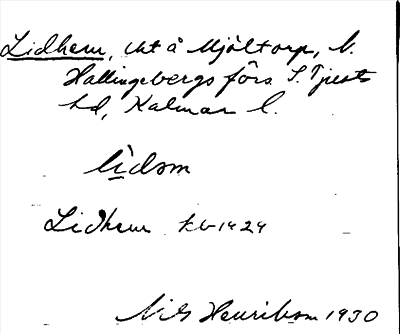 Lidhem, utt å Mjöltorp, V.
Hallingebergs förs S. Tjusts
hd, Kalmar l.
lìdom
Lidhem kb 1424
Nils Henrikson 1930